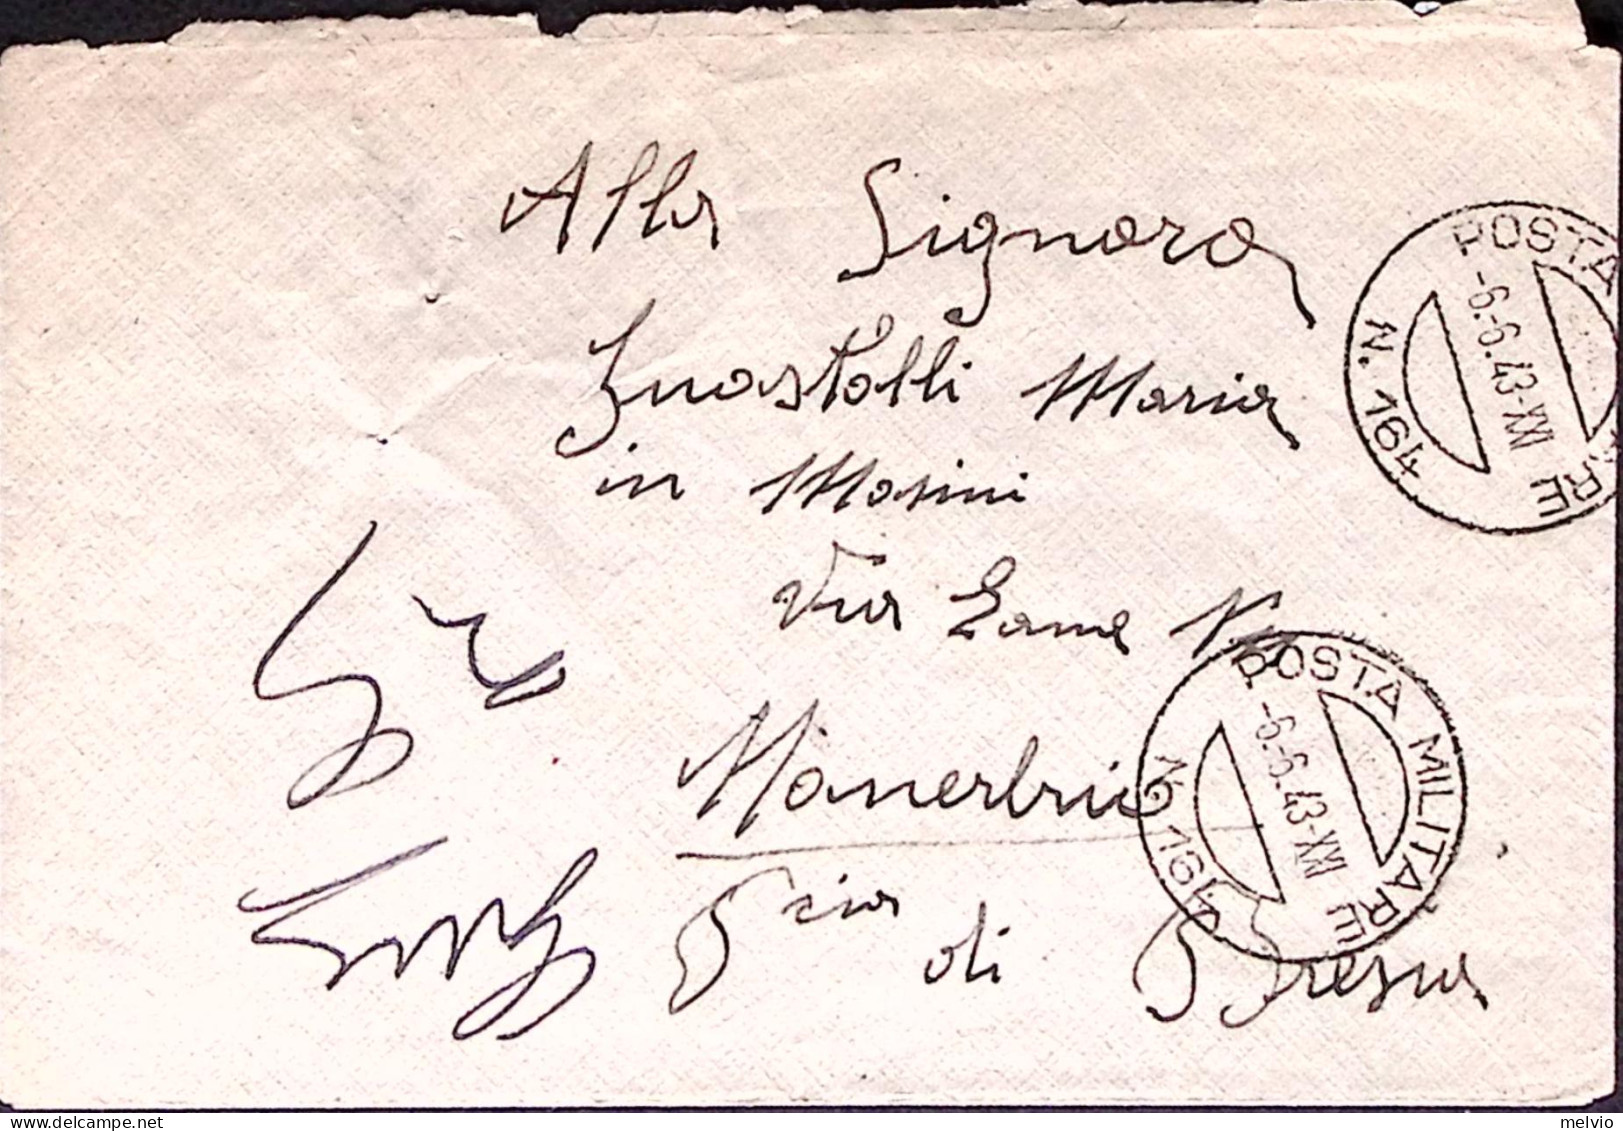 Alla Signora
Maria
in Masini
Via Lame N
POSTA MILITARE
N. 164
-6.-6.43-XXI
Manerbio
P cia di Brescia
POSTA MILITARE
N° 164
-6.-6.43-XXI
melvio